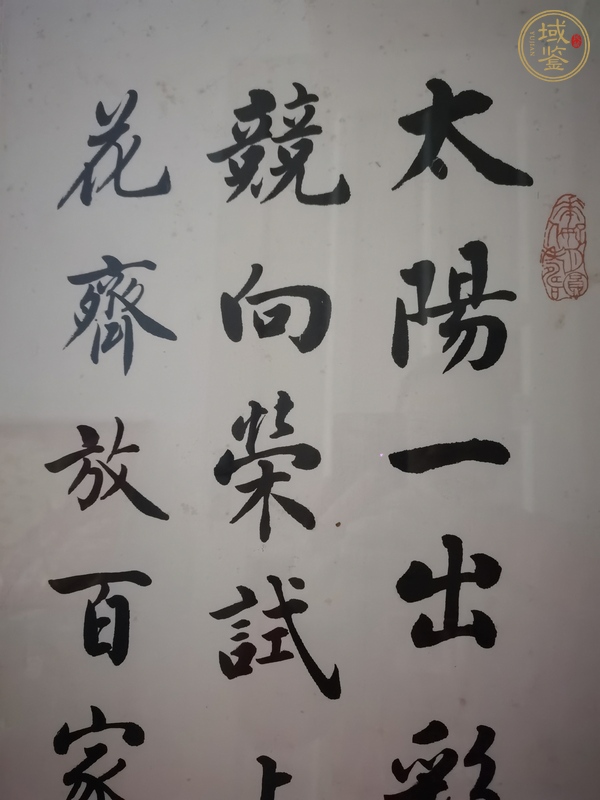 太陽一出彩
競向榮試上
花齊放百家
域鉴
YUJIAN